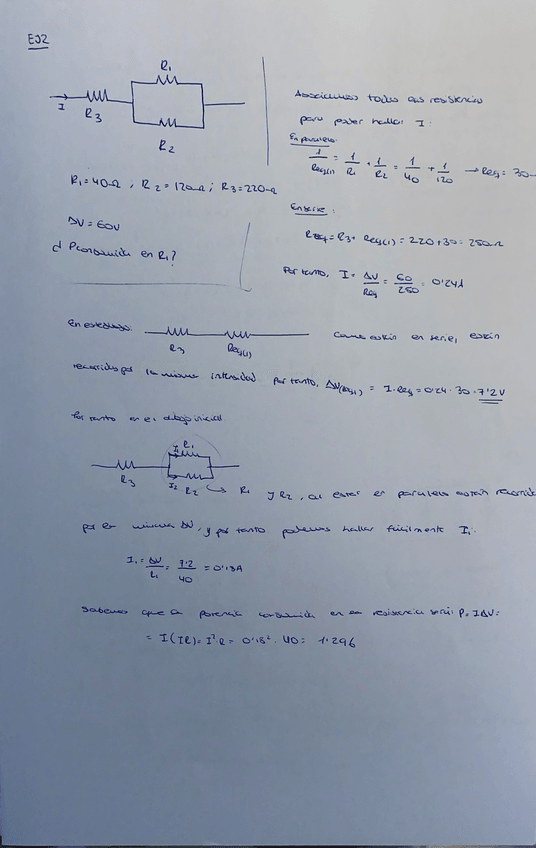 EJ2
R1
I
R3
R2
R1 = 40Ω ; R2 = 120Ω ; R3 = 220Ω
ΔV = 60V
¿ P consumida en R1?
Asociamos todas las resistencias
para poder hallar I.
En paralelo:
1/Req(1) = 1/R1 + 1/R2 = 1/40 + 1/120 → Req = 30
En serie:
Req = R3 + Req(1) = 220 + 30 = 250Ω
Por tanto, I = ΔV/Req = 60/250 = 0'24A
En este dibujo:
R3 Req(1)
Como están en serie, están
recorridos por la misma intensidad por tanto, ΔV(Req1) = I·Req = 0'24·30 = 7'2V
Por tanto en el dibujo inicial
I1 R1
R3
I2 R2
R1 y R2, al estar en paralelo están
por el mismo ΔV, y por tanto podemos hallar fácilmente I1:
I1 = ΔV/R1 = 7'2/40 = 0'18A
Sabemos que la potencia consumida en una resistencia será: P = IΔV =
= I(IR) = I²·R = 0'18²·40 = 1'296